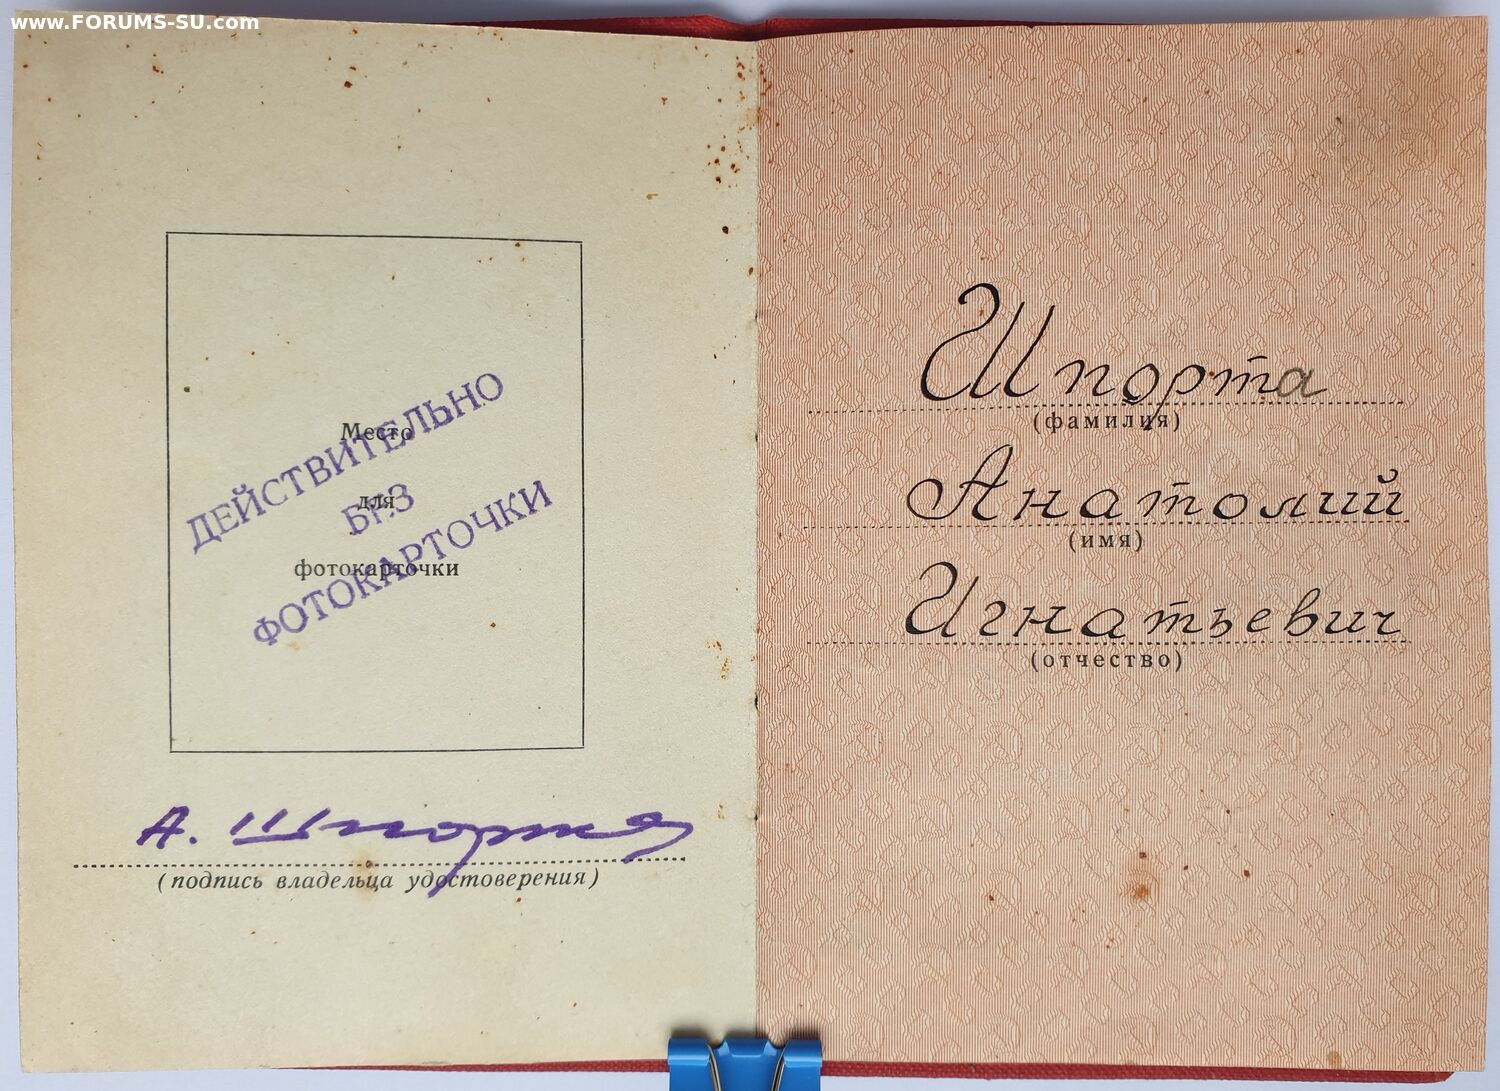 www.FORUMS-SU.com
Место
для
фотокарточки
ДЕЙСТВИТЕЛЬНО
БЕЗ
ФОТОКАРТОЧКИ
А. Шпорта
(подпись владельца удостоверения)
Шпорта
(фамилия)
Анатолий
(имя)
Игнатьевич
(отчество)